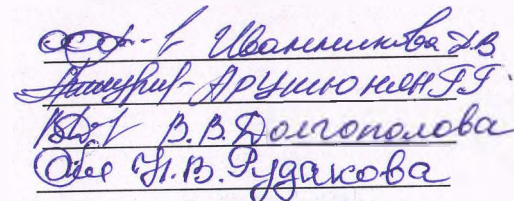 Иванникова Л.В.
Арутюнян Г.Г.
В.В.Долгополова
Н.В.Рудакова